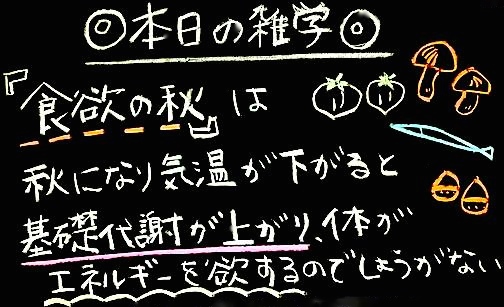 ◎本日の雑学◎
『食欲の秋』は
秋になり気温が下がると
基礎代謝が上がり、体が
エネルギーを欲するのでしょうがない